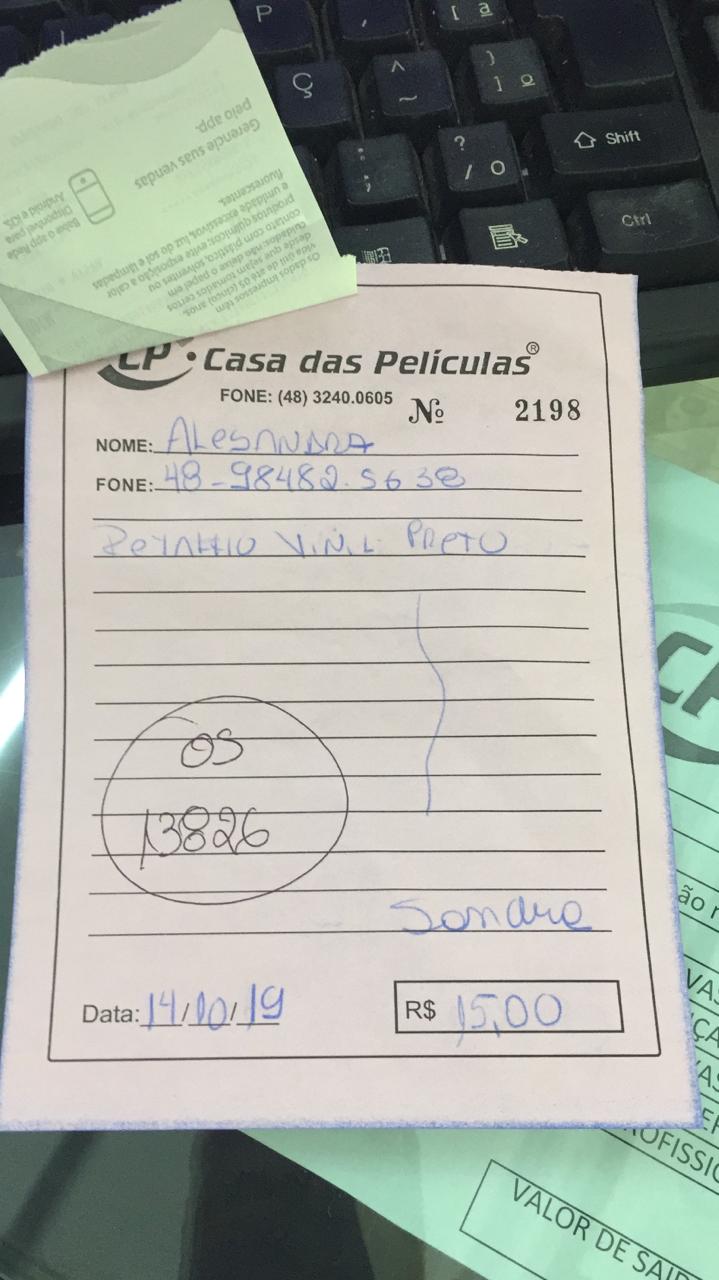 P
Ç
^
~
[ ª
}
] º
:
;
?
/ O
Shift
Ctrl
Gerencie suas vendas
pelo app.
Baixe o app Rede
Disponível para
Android e iOS.
Os dados impressos têm
vida útil de até 05 (cinco) anos,
desde que sejam tomados certos
contato com plástico, solventes ou
produtos químicos; evite exposição a calor
e umidade excessivos, luz do sol e lâmpadas
fluorescentes.
CP • Casa das Películas®
FONE: (48) 3240.0605
Nº 2198
NOME: ALESANDRA
FONE: 48-98482.5638
VINIL PRETO
OS
13826
Sandra
Data: 14/10/19
R$ 15,00
CP
ão
VALOR DE